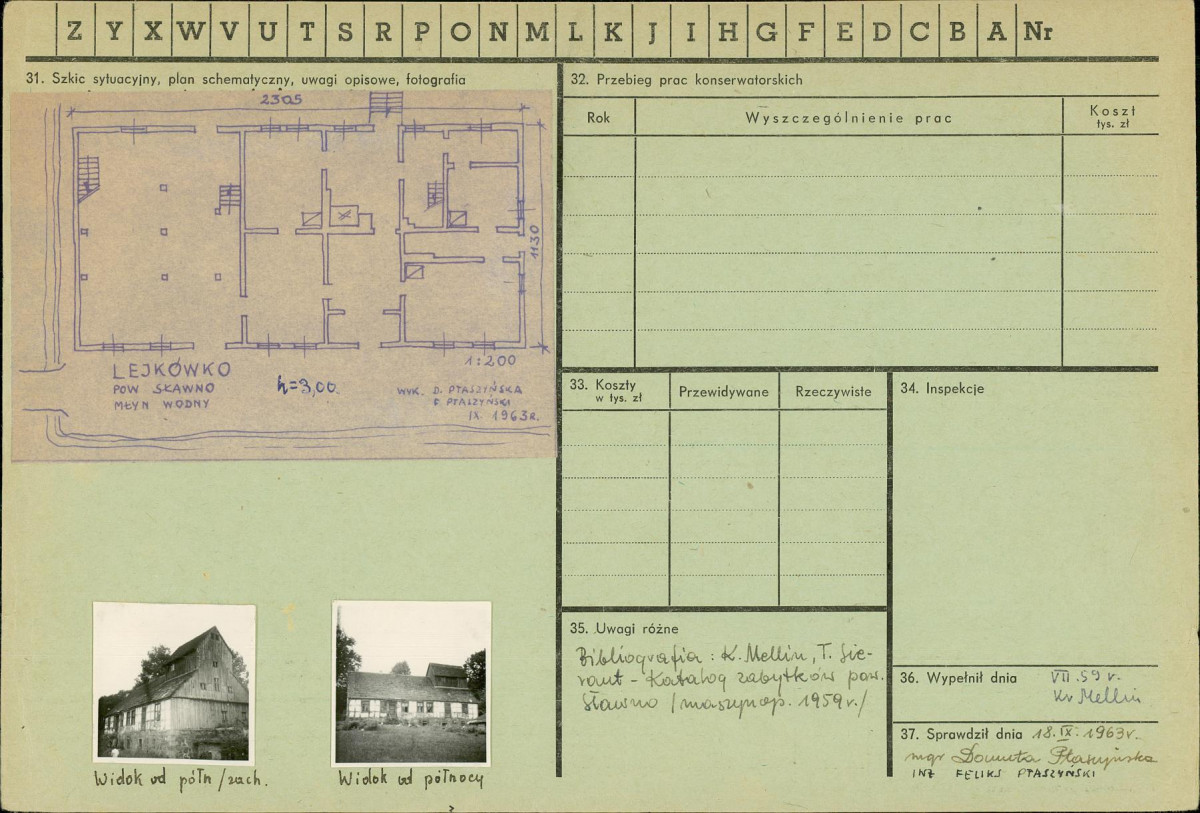 Z Y X W V U T S R P O N M L K J I H G F E D C B A Nr
31. Szkic sytuacyjny, plan schematyczny, uwagi opisowe, fotografia
2305
1130
1:200
LEJKÓWKO
POW SŁAWNO
MŁYN WODNY
h=3,00.
WYK. D. PTASZYŃSKA
F. PTASZYŃSKI
IX 1963R.
Widok od półn/zach.
Widok od północy
32. Przebieg prac konserwatorskich
Rok
Wyszczególnienie prac
Koszt
tys. zł
33. Koszty
w tys. zł
Przewidywane
Rzeczywiste
34. Inspekcje
35. Uwagi różne
Bibliografia: K. Mellin, T. Sie-
raut - Katalog zabytków pow.
Sławno /maszynop. 1959r./
36. Wypełnił dnia VII.59 r.
Kr Mellin
37. Sprawdził dnia 18.IX.1963r.
mgr Danuta Ptaszyńska
INŻ FELIKS PTASZYŃSKI